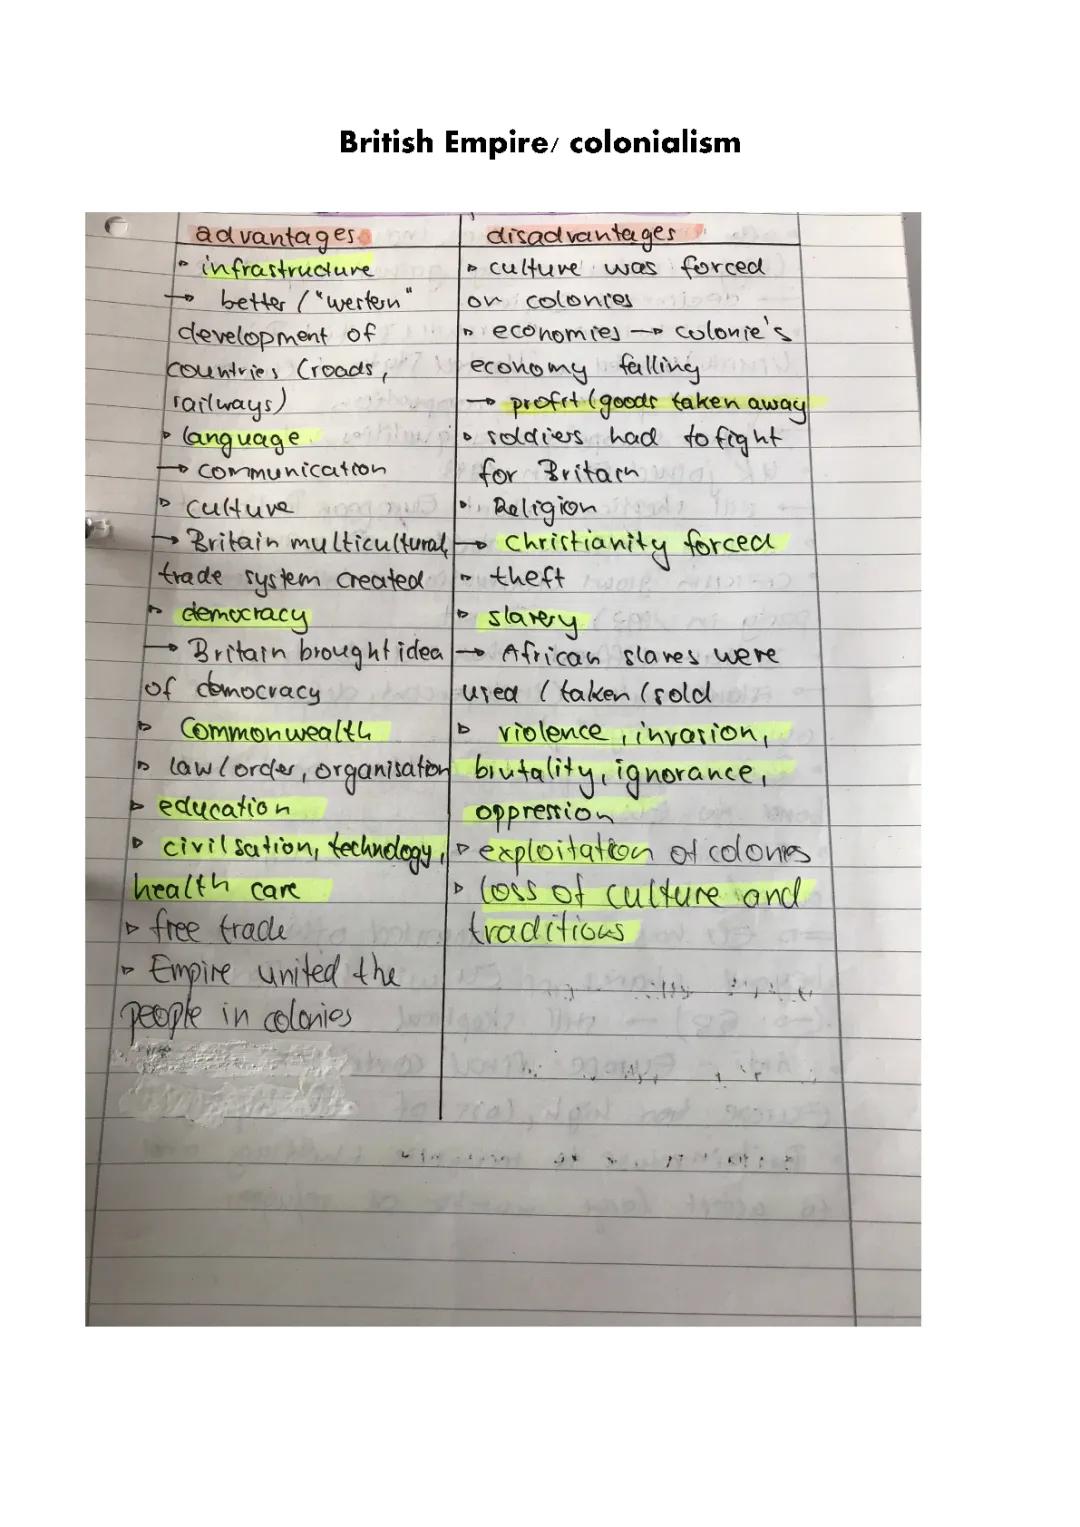 British Empire/ colonialism
advantages
▹ infrastructure
→ better / "western"
development of
countries (roads,
railways)
▹ language
→ communication
▹ culture
→ Britain multicultural,
trade system created
▹ democracy
→ Britain brought idea
of democracy
▹ Commonwealth
▹ law/order, organisation
▹ education
▹ civilsation, technology,
health care
▹ free trade
▹ Empire united the
people in colonies
disadvantages
▹ culture was forced
on colonies
▹ economies → colonie's
economy falling
→ profit/goods taken away
▹ soldiers had to fight
for Britain
▹ Religion
→ Christianity forced
▹ theft
▹ slavery
→ African slaves were
used / taken / sold
▹ violence, invasion,
brutality, ignorance,
oppression
▹ exploitation of colonies
▹ loss of culture and
traditions